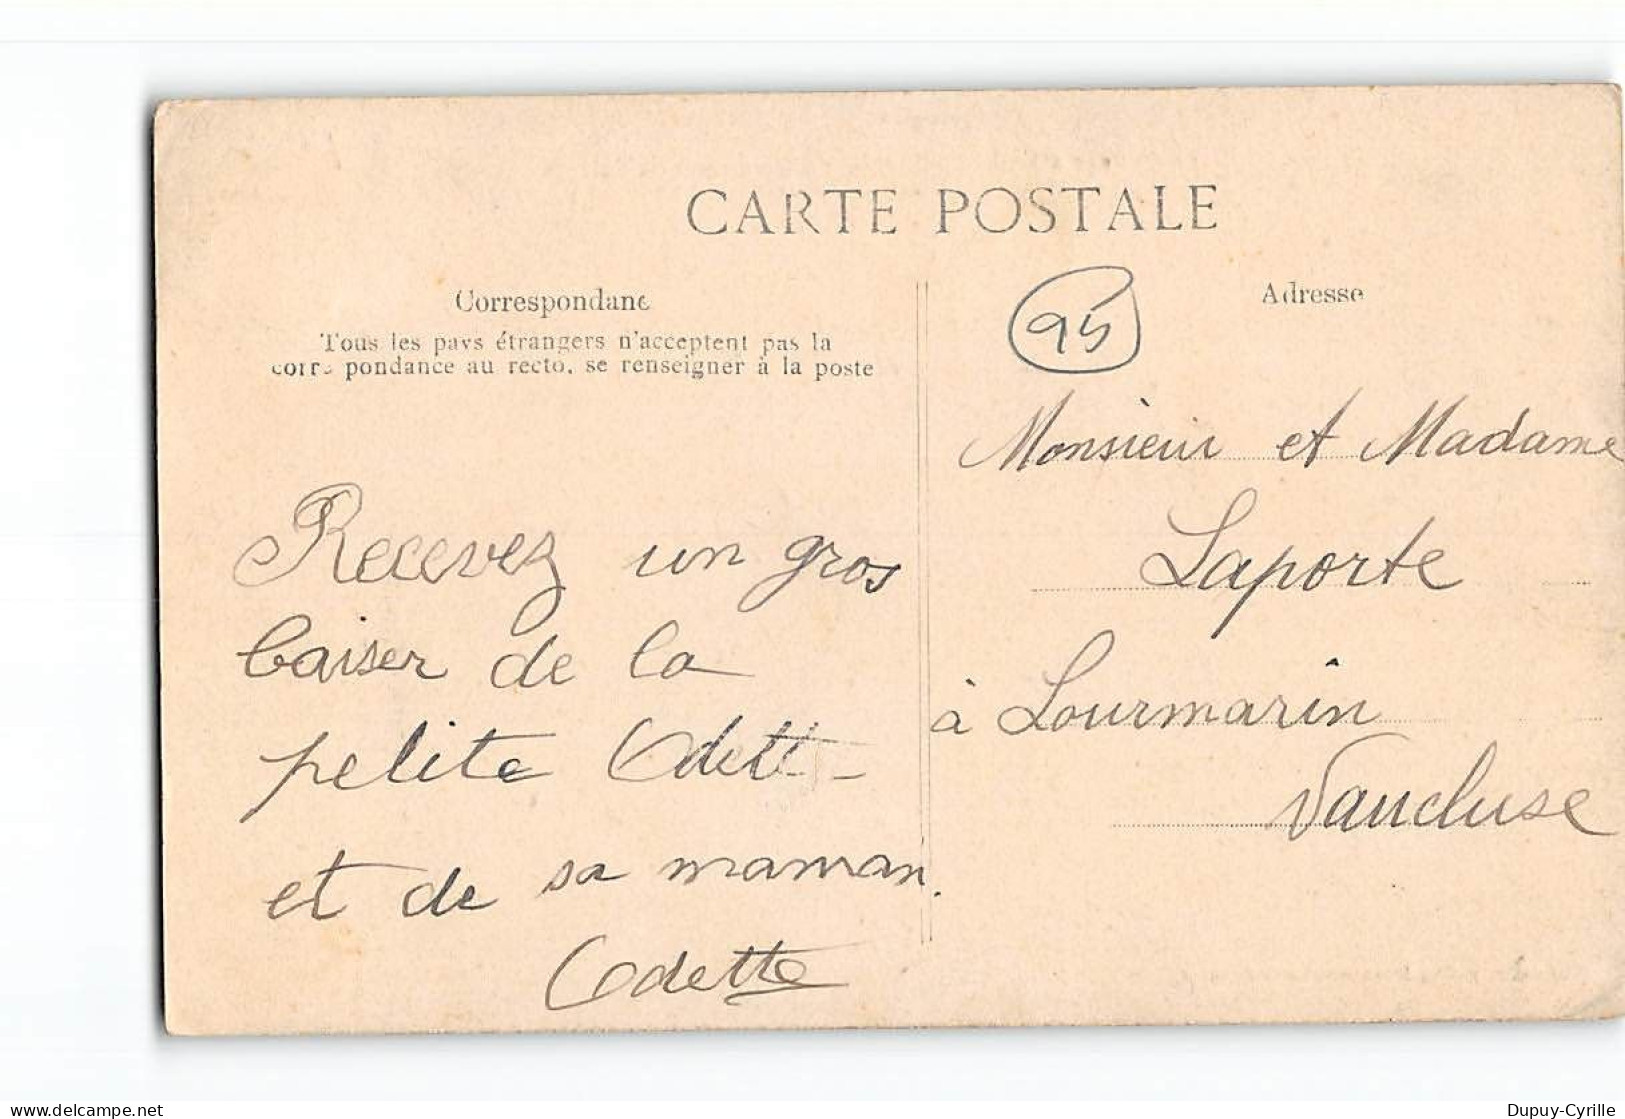 CARTE POSTALE
Correspondanc
Tous les pays étrangers n'acceptent pas la
corres pondance au recto, se renseigner à la poste
Recevez un gros
baiser de la
petite Odette
et de sa maman.
Odette
Adresse
95
Monsieur et Madame
Laporte
à Lourmarin
Vaucluse
delcampe.net
Dupuy-Cyrille